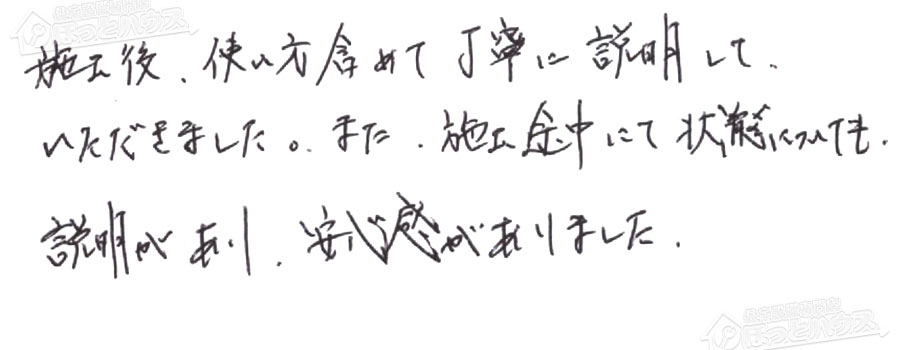 ほっとハウス
施工後、使い方含めて丁寧に説明して、
いただきました。また、施工途中にて状態についても、
説明があり、安心感がありました。
ほっとハウス